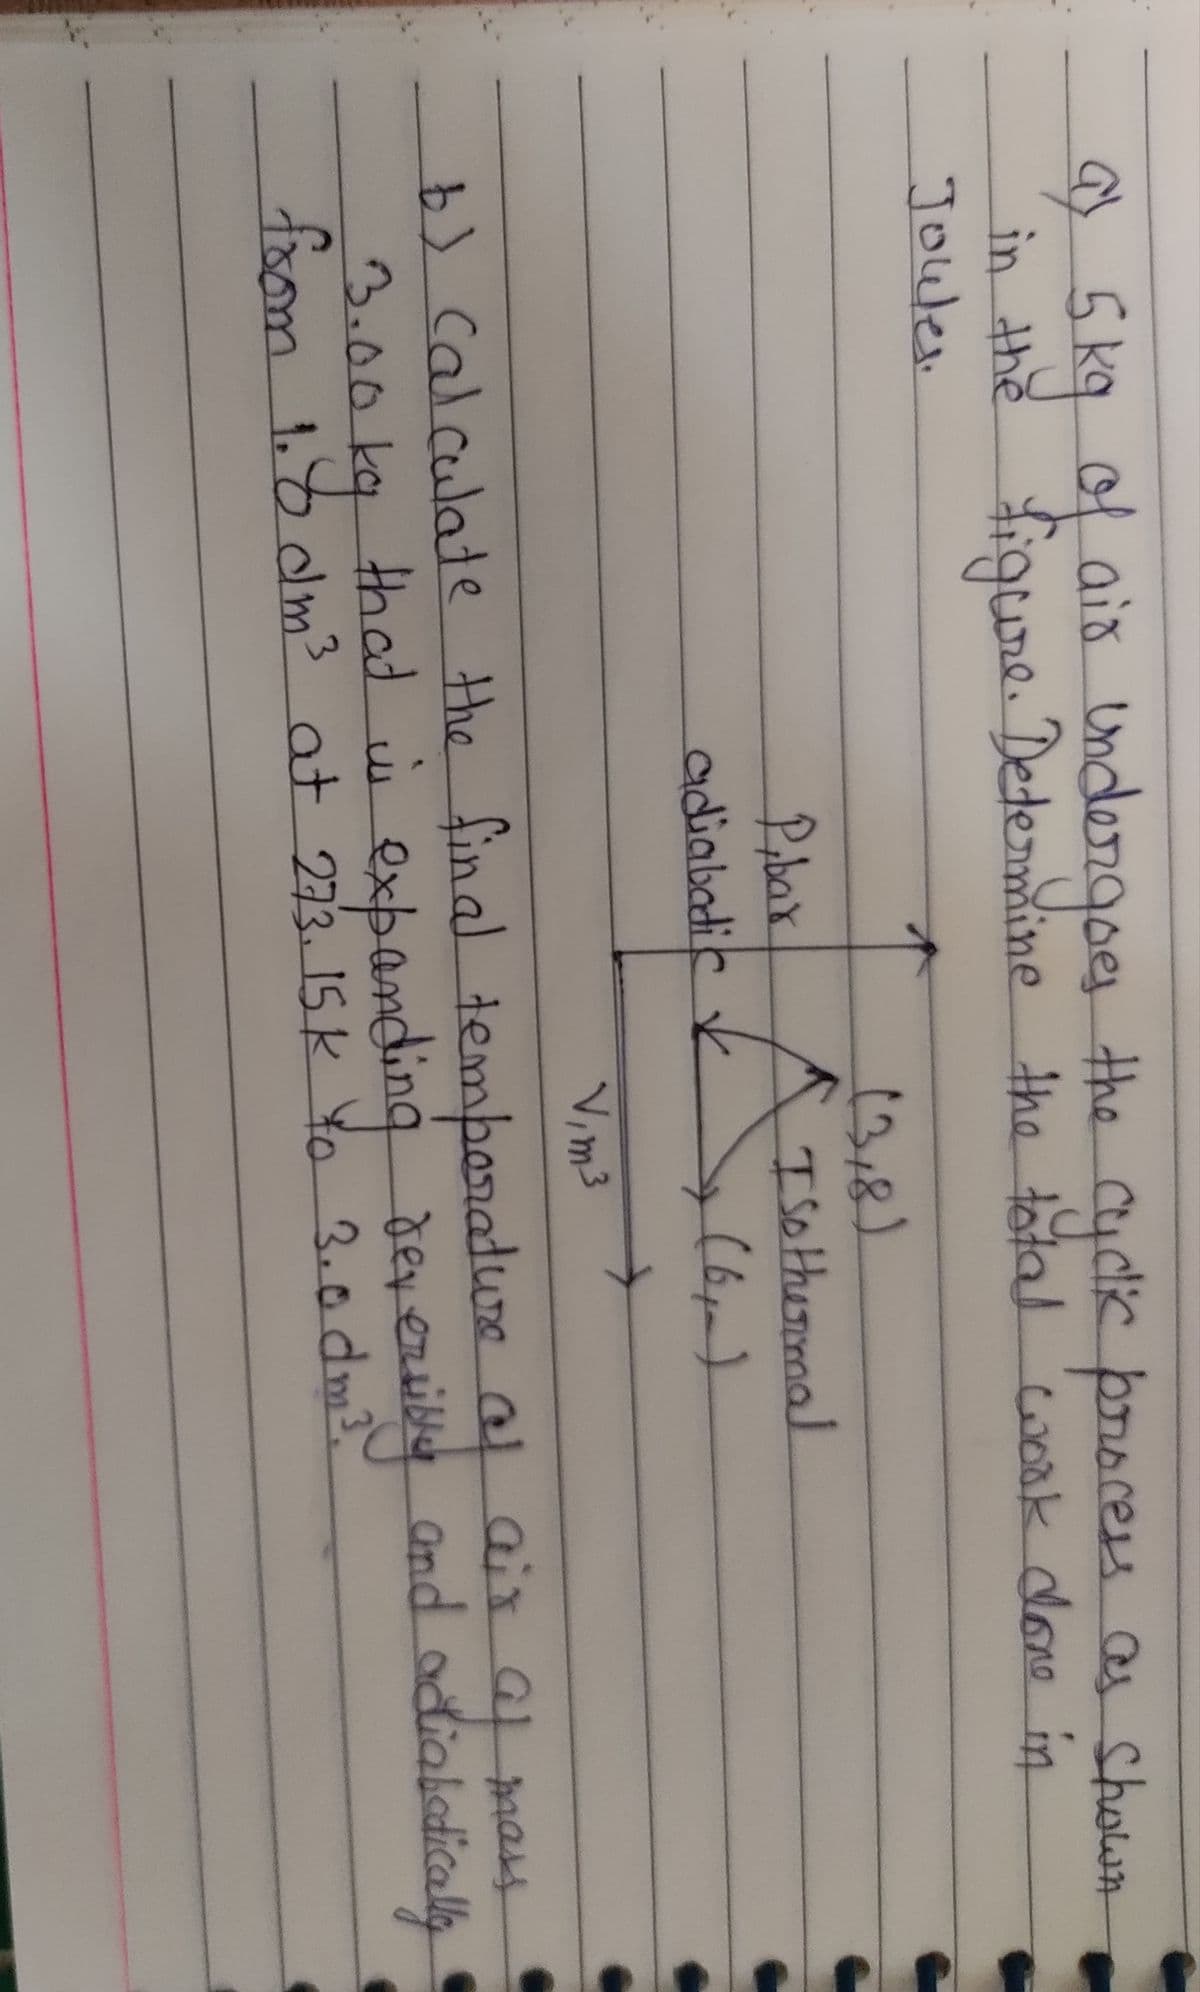 a) 5 kg of air undergoes the cyclic process as shown
in the figure. Determine the total work done in
Joules.
(3,8)
P, bar
Isothermal
adiabatic
(6,-)
V, m³
b) Calculate the final temperature of air of mass
3.00 kg that is expanding reversibly and adiabatically
from 1.0 dm³ at 273.15K to 3.0 dm³.